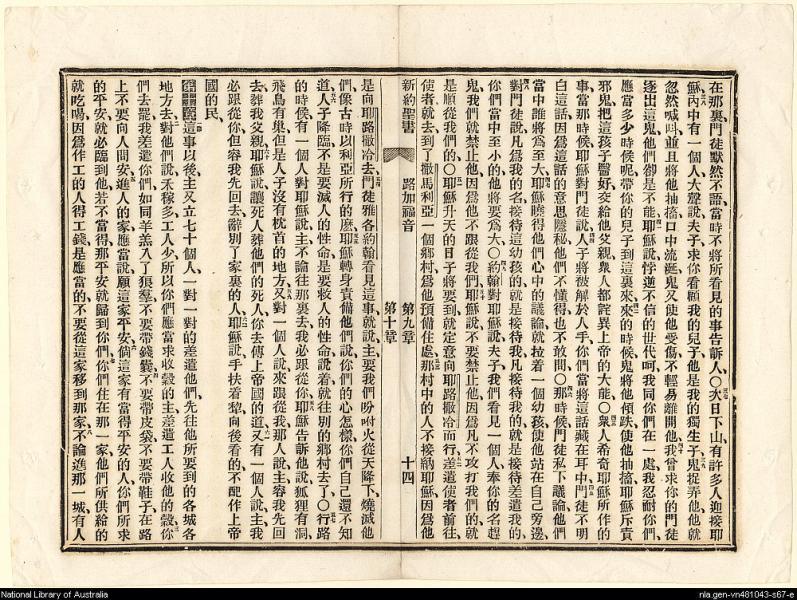 在那裏門徒默然不語當時不將所看見的事告訴人○次日下山有許多人迎接耶
穌內中有一個人大聲說夫子求你看顧我的兒子他是我的獨生子鬼捉弄他他就
忽然喊叫並且將他抽搐口中流涎鬼又使他受傷不輕易離開他我曾求你的門徒
逐出這鬼他們卻是不能耶穌說悖逆不信的世代呵我同你們在一處我忍耐你們
應當多少時候呢帶你的兒子到這裏來來的時候鬼將他傾跌使他抽搐耶穌斥責
邪鬼把這孩子醫好交給他父親衆人都詫異上帝的大能○衆人希奇耶穌所作的
事當那時候耶穌對門徒說人子將被解於人手你們當將這話藏在耳中門徒不明
白這話因爲這話的意思隱秘他們不懂得也不敢問○那時候門徒私下議論他們
當中誰將爲至大耶穌曉得他們心中的議論就拉着一個幼孩使他站在自己旁邊
對門徒說凡爲我的名接待這幼孩的就是接待我凡接待我的就是接待差遣我的
你們當中至小的他將要爲大○約翰對耶穌說夫子我們看見一個人奉你的名趕
鬼我們就禁止他因爲他不跟從我們耶穌說不要禁止他因爲凡不攻打我們的就
是順從我們的○耶穌升天的日子將要到就定意向耶路撒冷而行差遣使者前往
使者就去到了撒馬利亞一個鄉村爲他預備住處那村中的人不接納耶穌因爲他
新約聖書 路加福音 第九章 第十章 十四
是向耶路撒冷去門徒雅各約翰看見這事就說主要我們吩咐火從天降下燒滅他
們像古時以利亞所行的麽耶穌轉身責備他們說你們的心怎樣你們自己還不知
道人子降臨不是要滅人的性命是要救人的性命說着就往別的鄉村去了○行路
的時候有一個人對耶穌說主不論往那裏去我必跟從你耶穌告訴他說狐狸有洞
飛鳥有巢但是人子沒有枕首的地方又對一個人說來跟從我那人說主容我先回
去葬我父親耶穌說讓死人葬他們的死人你去傳上帝國的道又有一個人說主我
必跟從你但容我先回去辭別了家裏的人耶穌說手扶着犂向後看的不配作上帝
國的民
第十章這事以後主又立七十個人一對一對的差遣他們先往他所要到的各城各
地方去對他們說禾稼多工人少所以你們應當求收穀的主差遣工人收他的穀你
們去罷我差遣你們如同羊羔入了狼羣不要帶錢囊不要帶皮袋不要帶鞋子在路
上不要向人問安進人的家應當說願這家平安倘這家有當得平安的人你們所求
的平安就必臨到他若不當得那平安就歸到你們你們住在那一家他們所供給的
就吃喝因爲作工的人得工錢是應當的不要從這家移到那家不論進那一城有人
National Library of Australia
nla.gen-vn481043-s67-e